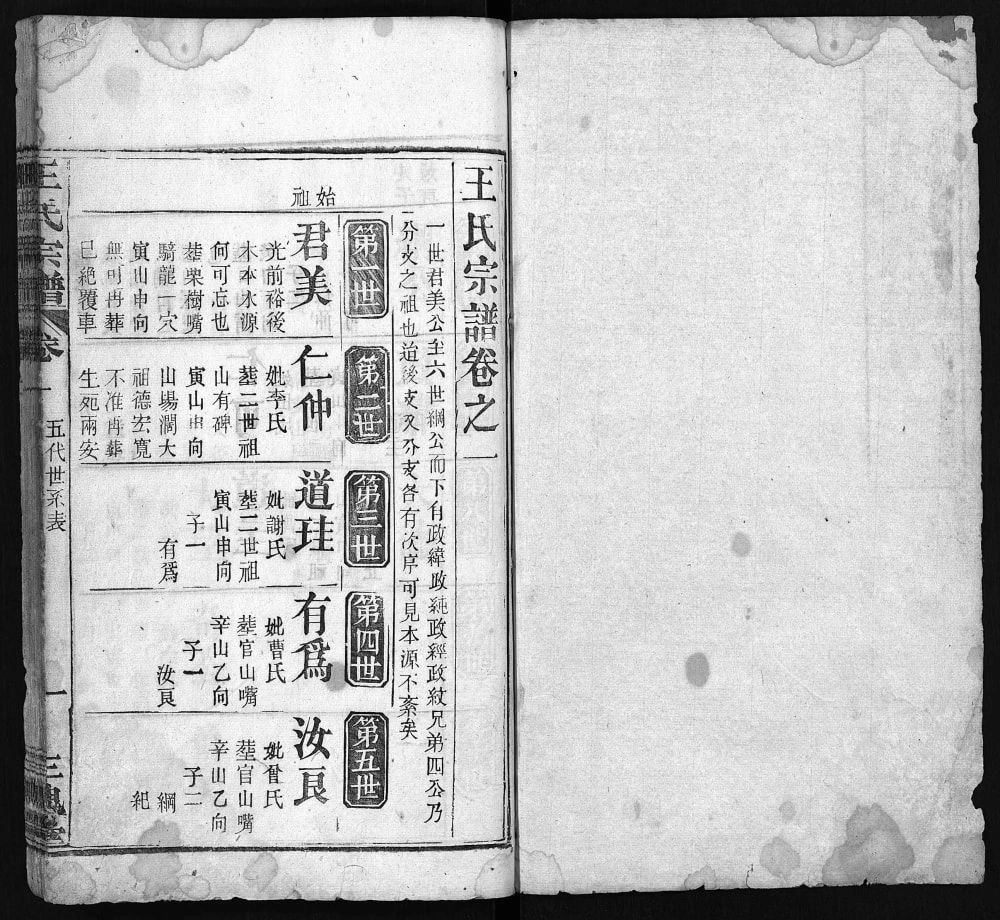 王氏宗譜卷之一
一世君美公至六世綱公而下有政緯政純政經政紋兄弟四公乃
分支之祖也迨後支久分支各有次序可見本源不紊矣
第一世
始祖
君美
光前裕後
木本水源
何可忘也
塟柴樹嘴
騎龍一穴
寅山申向
無可再葬
已絶覆車
第二世
仁仲
妣李氏
塟二世祖
山有碑
寅山申向
山場濶大
祖德宏寬
不准再葬
生死兩安
第三世
道珪
妣謝氏
塟二世祖
寅山申向
子一
有爲
第四世
有爲
妣曹氏
塟官山嘴
辛山乙向
子一
汝良
第五世
汝良
妣曾氏
塟官山嘴
辛山乙向
子二
綱
紀
王氏宗譜
卷一
五代世系表
一
三槐堂